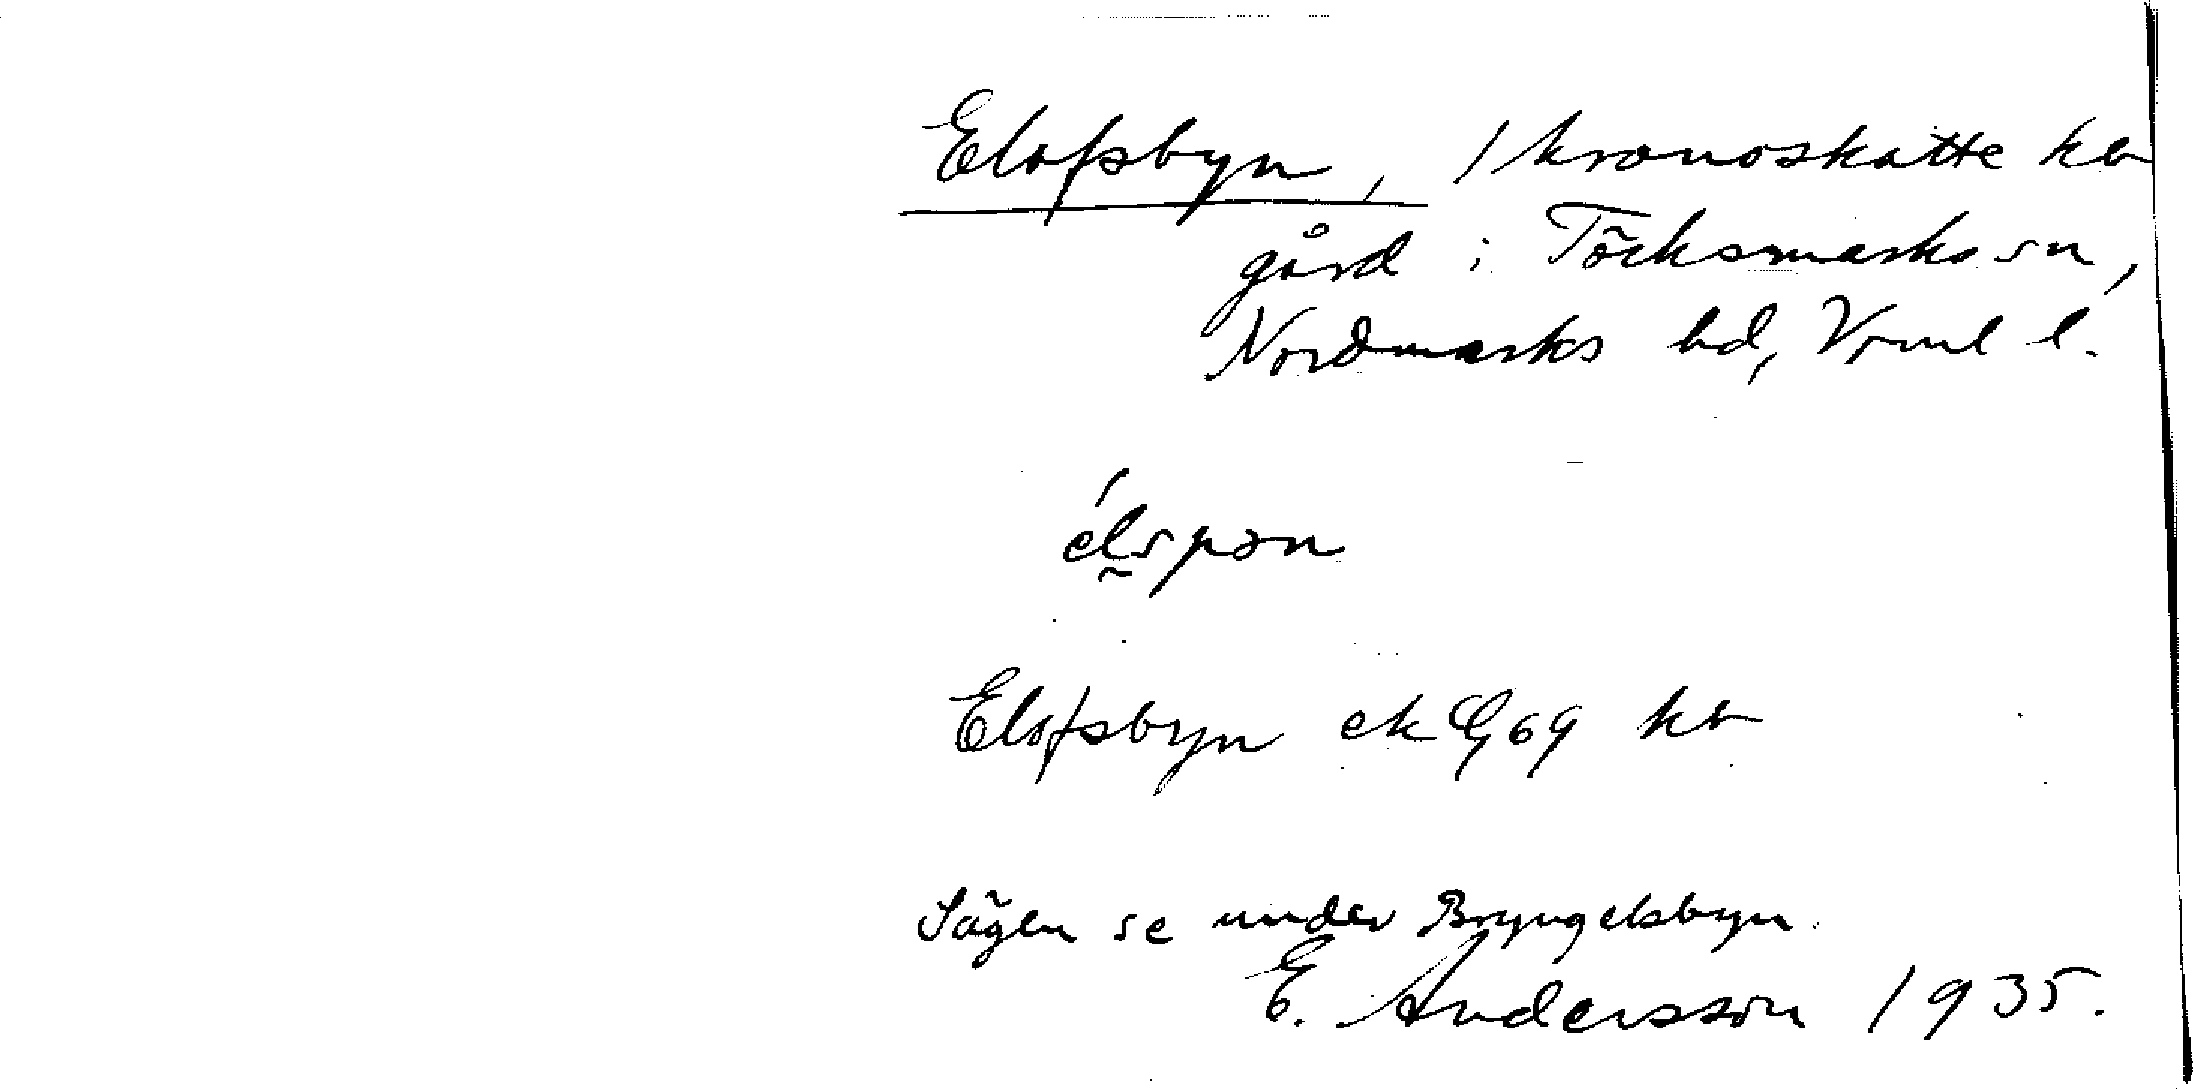 Elofsbyn, 1 kronoskatte
gård i Töcksmarks sn,
Nordmarks hd, Vrml l.
élspən
Elofsbyn ek 69
Sägen se under Bryngelsbyn.
E. Andersson 1935.